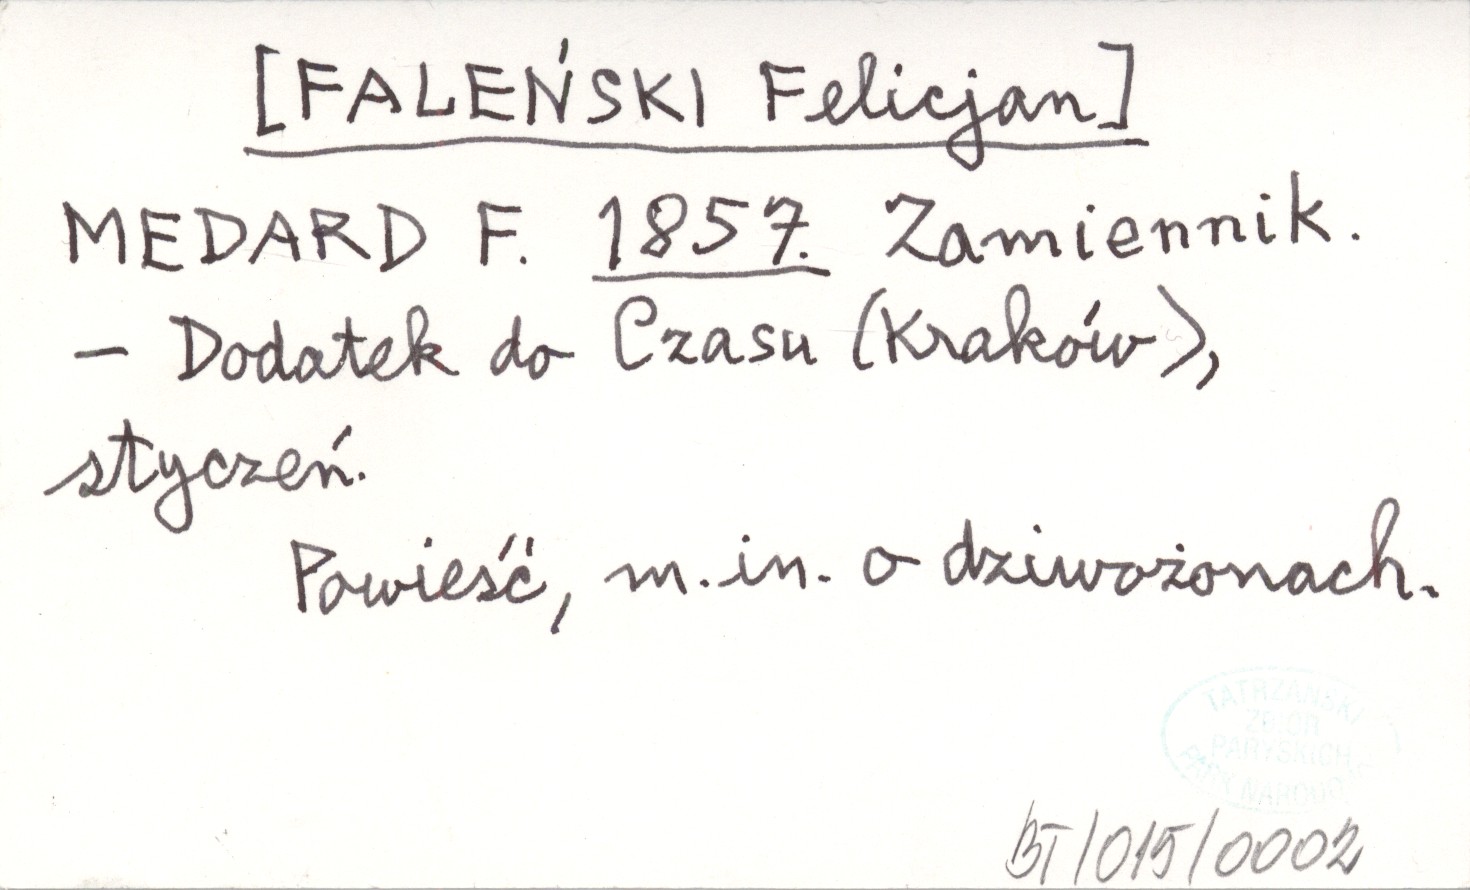 [FALEŃSKI Felicjan]
MEDARD F. 1857. Zamiennik.
– Dodatek do Czasu (Kraków),
styczeń.
Powieść, m.in. o dziwożonach.
TATRZAŃSKI
ZBIÓR
PARYSKICH
PARK NARODO
BT/015/0002